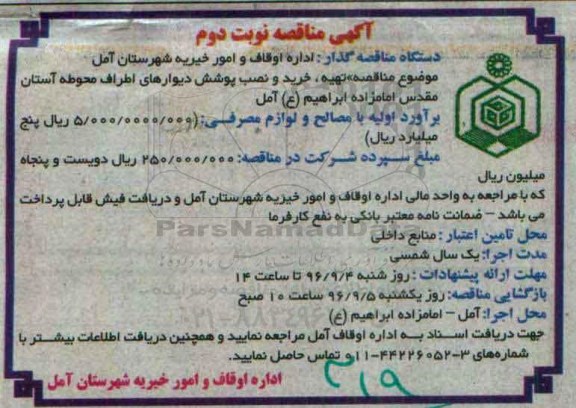 آگهی مناقصه نوبت دوم
دستگاه مناقصه گذار: اداره اوقاف و امور خیریه شهرستان آمل
موضوع مناقصه: تهیه، خرید و نصب پوشش دیوارهای اطراف محوطه آستان
مقدس امامزاده ابراهیم (ع) آمل
برآورد اولیه با مصالح و لوازم مصرفی: (۵/۰۰۰/۰۰۰۰/۰۰۰ ریال پنج
میلیارد ریال)
مبلغ سپرده شرکت در مناقصه: ۲۵۰/۰۰۰/۰۰۰ ریال دویست و پنجاه
میلیون ریال
که با مراجعه به واحد مالی اداره اوقاف و امور خیریه شهرستان آمل و دریافت فیش قابل پرداخت
می باشد - ضمانت نامه معتبر بانکی به نفع کارفرما
محل تامین اعتبار: منابع داخلی
مدت اجرا: یک سال شمسی
مهلت ارائه پیشنهادات: روز شنبه ۹۶/۹/۴ تا ساعت ۱۴
بازگشایی مناقصه: روز یکشنبه ۹۶/۹/۵ ساعت ۱۰ صبح
محل اجرا: آمل - امامزاده ابراهیم (ع)
جهت دریافت اسناد به اداره اوقاف آمل مراجعه نمایید و همچنین دریافت اطلاعات بیشتر با
شماره‌های ۳-۴۴۲۲۶۰۵۲-۰۱۱ تماس حاصل نمایید.
اداره اوقاف و امور خیریه شهرستان آمل
ParsNamadData